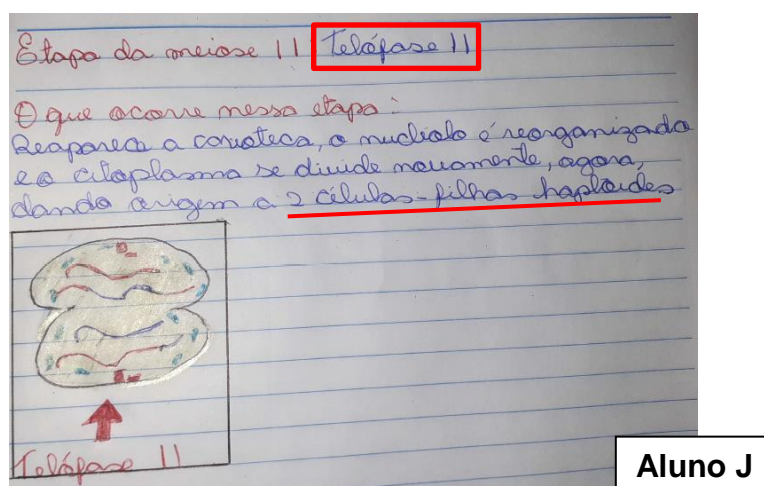 Etapa da meiose II Telófase II
O que ocorre nessa etapa:
Reaparece a carioteca, o nucléolo é reorganizado
e o citoplasma se divide novamente, agora,
dando origem a 2 células-filhas haploides
Telófase II
Aluno J